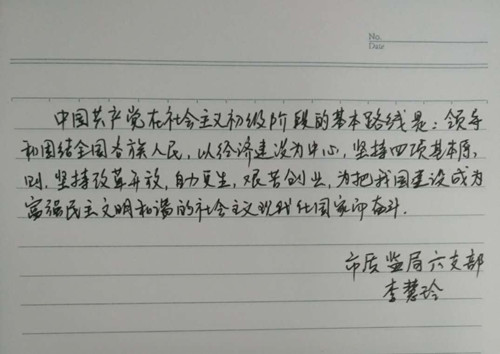 No.
Date
中国共产党在社会主义初级阶段的基本路线是：领导
和团结全国各族人民，以经济建设为中心，坚持四项基本原
则，坚持改革开放，自力更生，艰苦创业，为把我国建设成为
富强民主文明和谐的社会主义现代化国家而奋斗.
市质监局六支部
李慧玲